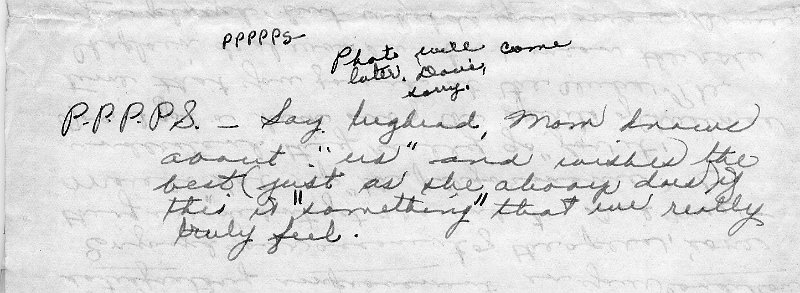 PPPPPS
Photo will come
later. Dave,
sorry.
P.P.P.P.S. – Say lughead, Mom knows
about "us" and wishes the
best (just as she always does) if
this is "something" that we really,
truly feel.